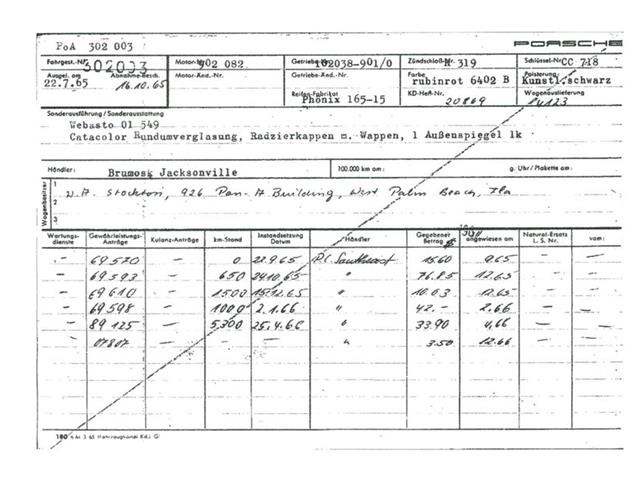 PoA 302 003 PORSCHE
Fahrgest.-Nr. 302003 Motor-Nr. 902 082 Getriebe-Nr. 102038-901/0 Zündschloß-Nr. N 319 Schlüssel-Nr. CC 718
Ausgel. am 22.7.65 Abnahme-Besch. 16.10.65 Motor-Änd.-Nr. Getriebe-Änd.-Nr. Farbe rubinrot 6402 B Polsterung Kunstl.schwarz
Reifen-Fabrikat Phönix 165-15 KD-Heft-Nr. 20869 Wagenauslieferung
Sonderausführung / Sonderausstattung
Webasto 01 549
Catacolor Rundumverglasung, Radzierkappen m. Wappen, 1 Außenspiegel lk
Händler: Brumosk Jacksonville 100.000 km am: g. Uhr / Plakette am:
Wagenbesitzer 1 W.A. Stockton, 926 Pan-A Building, West Palm Beach, Fla
2
3
Wartungs-dienste Gewährleistungs-Anträge Kulanz-Anträge km-Stand Instandsetzung Datum Händler Gegebener Betrag angewiesen am Natural-Ersatz L. S. Nr. vom:
- 69570 - 0 22.9.65 15.60 9.65 -
- 69593 - 650 24.10.65 " 76.85 12.65 -
- 69610 - 1500 15.12.65 " 16.03 12.65 - -
- 69598 - 1000 2.1.66 " 42.- 2.66 - -
- 89 125 - 5,300 25.4.66 " 33.90 4.66 - -
07807 - - " 3.50 12.66 -
180